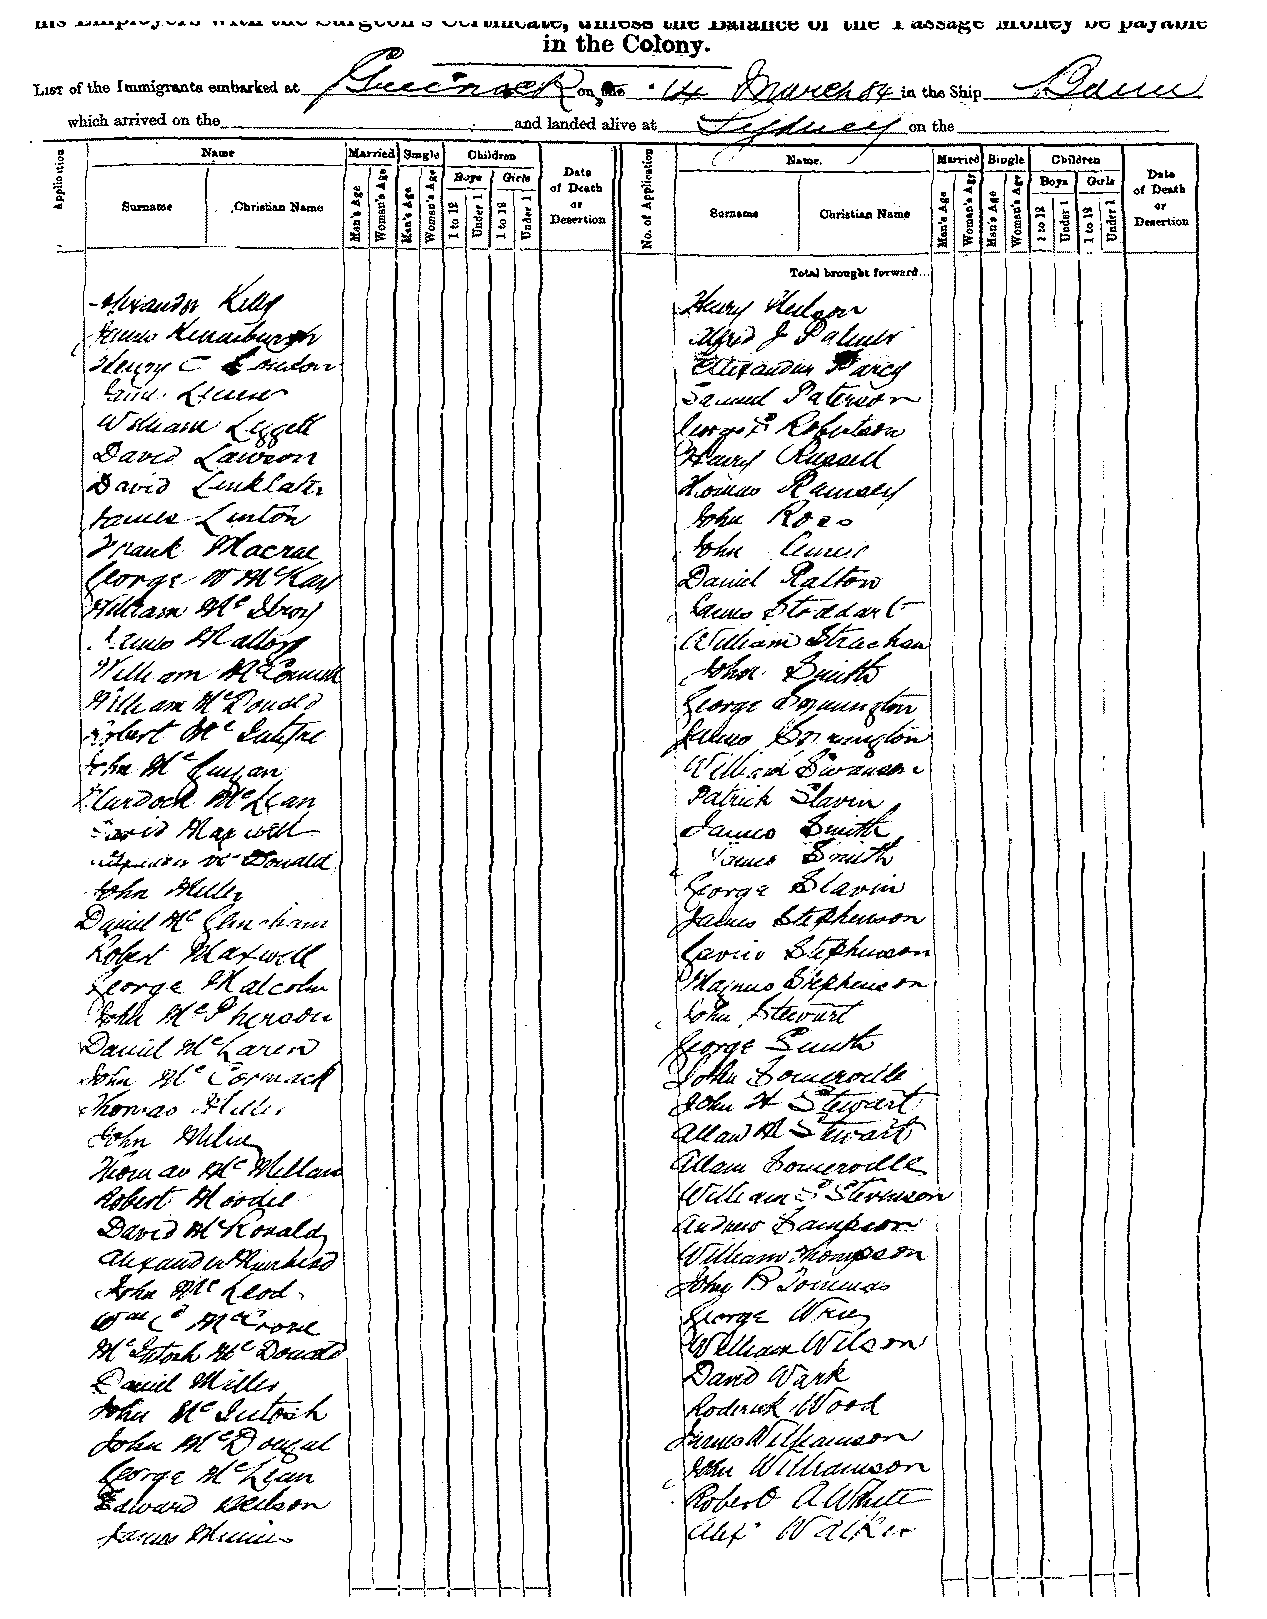 his Employers with the Surgeon's Certificate, unless the Balance of the Passage Money be payable
in the Colony.
List of the Immigrants embarked at Greenock on the 14 March 84 in the Ship
which arrived on the and landed alive at Sydney on the
Application Name Married Single Children Date of Death or Desertion No. of Application Name. Married Single Children Date of Death or Desertion
Boys Girls Boys Girls
Surname Christian Name Man's Age Woman's Age Man's Age Woman's Age 1 to 12 Under 1 1 to 12 Under 1 Surname Christian Name Man's Age Woman's Age Man's Age Woman's Age 1 to 12 Under 1 1 to 12 Under 1
Total brought forward...
Alexander Kelly
James Kinniburgh
Henry C London
William Leggett
David Lawson
David Linklater
James Linton
Frank Macrae
George W McKay
William McIlroy
James Malloy
William McConnell
William McDonald
Robert McIntyre
John McGuigan
Murdoch McLean
David Maxwell
McDonald
John Miller
Daniel
Robert Maxwell
George Malcolm
John McPherson
Daniel McLaren
John McCormack
Thomas Miller
John Milne
Thomas McMellan
Robert Moodie
David McRonald
Alexander Muirhead
John McLeod
Wm C McCrone
McIntosh McDonald
Daniel Miller
John McIntosh
John McDougal
George McLean
Edward Neilson
James
Henry Neilson
Alfred J Palmer
Alexander Parcy
Samuel Paterson
George F Robertson
Henry Russell
Thomas Ramsey
John Ross
John
Daniel Ralton
James Stoddart
William Strachan
John Smith
George Sonnington
James Sonnington
William Swanson
Patrick Slavin
James Smith
James Smith
George Slavin
James Stephenson
Gavin Stephenson
Magnus Stephenson
John Stewart
George Smith
John Somerville
John H Stewart
Allan M Stewart
Allan Somerville
William S Stevenson
Andrew Sampson
William Thompson
John B Tommas
George Wrey
William Wilson
David Wark
Roderick Wood
James Williamson
John Williamson
Robert A White
Alex Walker